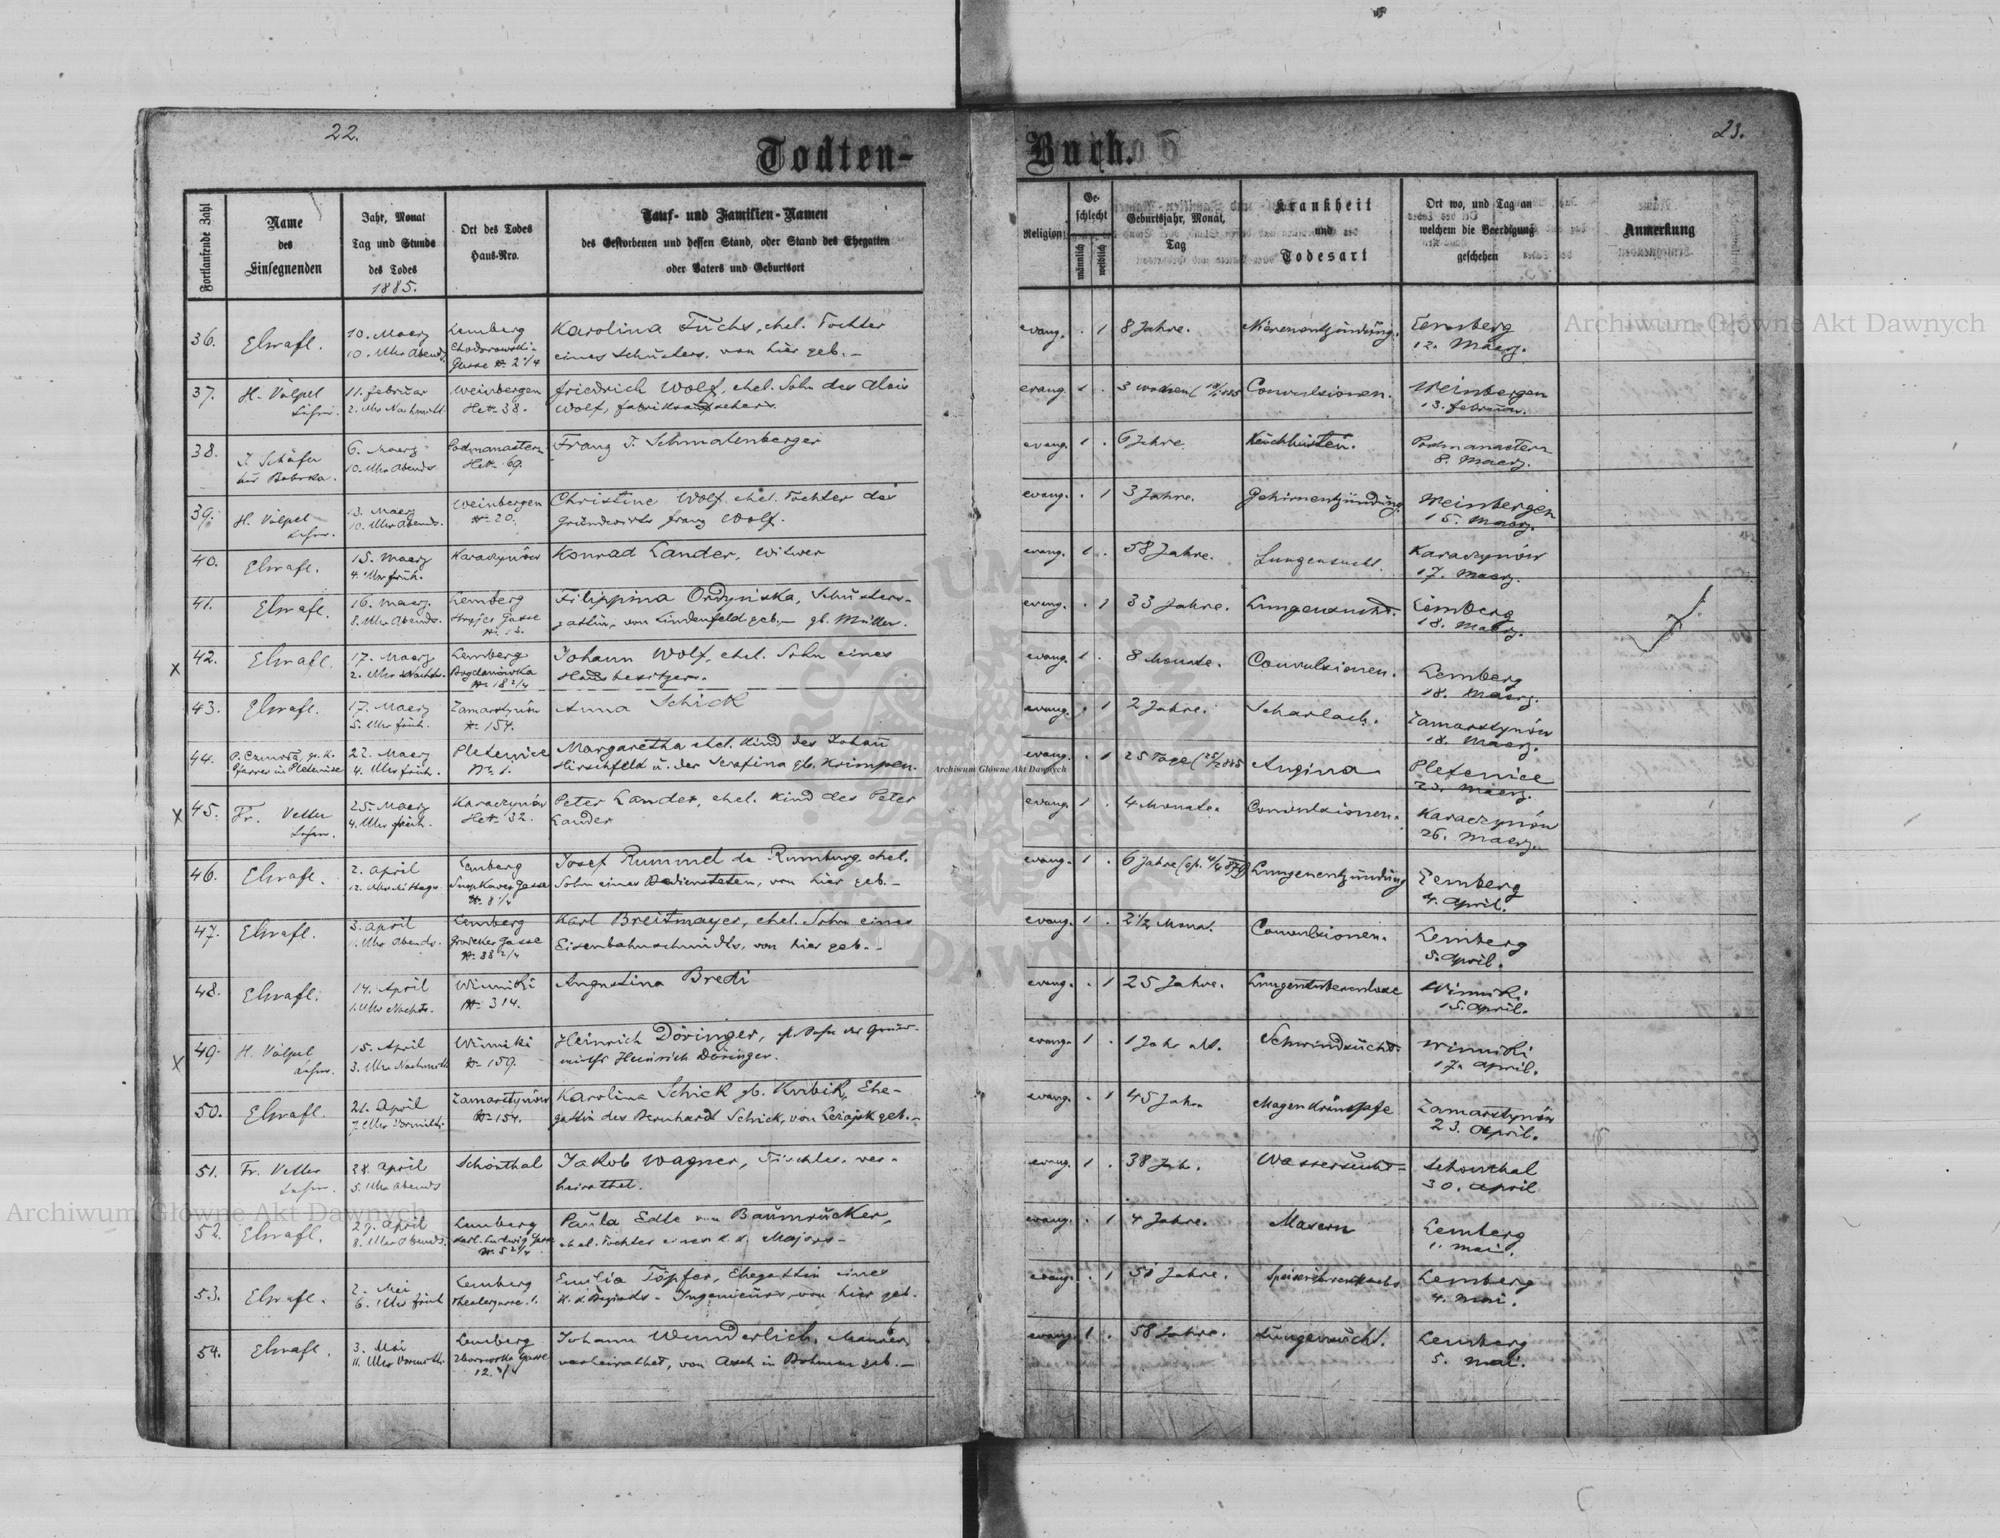 22.
23.
Todten-
Buch.
Fortlaufende Zahl
Name
des
Einsegnenden
Jahr, Monat
Tag und Stunde
des Todes
1885.
Ort des Todes
Haus-Nro.
Tauf- und Familien-Namen
des Gestorbenen und dessen Stand, oder Stand des Ehegatten
oder Vaters und Geburtsort
Religion
Ge-
schlecht
männlich
weiblich
Geburtsjahr, Monat,
Tag
Krankheit
und
Todesart
Ort wo, und Tag an
welchem die Beerdigung
geschehen
Anmerkung
36.
10. Maerz
10. Uhr Abends
Lemberg
Chodorowski-
Gasse № 2 1/4
Karolina Fuchs, ehel. Tochter
eines Schusters, von hier geb.-
evang. . 1 8 Jahre.
Nierenentzündung.
Lemberg
12. Maerz.
37.
H. Völpel
Lehrer.
11. Februar
2. Uhr Nachmitt.
Weinbergen
Het. 38.
Friedrich Wolf, ehel. Sohn des Alois
Wolf,
evang. 1 . 3 Wochen
Convulsionen.
Weinbergen
13. Februar.
38.
J. Schäfer
aus Bobrka.
6. Maerz
10. Uhr Abends
Podmanastern
Het. 69.
Franz J. Schmalenberger
evang. 1 . 6 Jahre
Keuchhusten.
Podmanastern
8. Maerz.
39.
H. Völpel
Lehrer.
13. Maerz
10. Uhr Abends.
Weinbergen
№ 20.
Christine Wolf, ehel. Tochter des
Grundwirts Franz Wolf.
evang. . 1 3 Jahre.
Gehirnentzündung.
Weinbergen
15. Maerz.
40.
15. Maerz
4. Uhr früh.
Karaczynów
Konrad Lander, Witwer
evang. 1 . 58 Jahre.
Lungensucht.
Karaczynów
17. Maerz.
41.
16. Maerz.
8. Uhr Abends.
Lemberg
Gasse
Filippina Ordyńska, Schusters-
gattin, von Lindenfeld geb.- gb. Müller.
evang. . 1 33 Jahre.
Lungensucht.
Lemberg
18. Maerz.
x 42.
17. Maerz
2. Uhr Nachts.
Lemberg
Bogdanówka
№ 18 2/4
Johann Wolf, ehel. Sohn eines
Hausbesitzers.
evang. 1 . 8 Monate.
Convulsionen.
Lemberg
18. Maerz.
43.
17. Maerz
5. Uhr früh.
Zamarstynów
№ 154.
Anna Schick
evang. . 1 2 Jahre.
Scharlach.
Zamarstynów
18. Maerz.
44.
Pfarrer in Pletenice
22. Maerz
4. Uhr früh.
Pletenice
№ 1.
Margaretha ehel. Kind des Johann
Hirschfeld u. der Serafina gb. Krimpen.
evang. . 1 25 Tage
Angina
Pletenice
Maerz.
x 45.
Fr. Vetter
Lehrer.
25. Maerz
4. Uhr früh.
Karaczynów
Het. 32.
Peter Lander, ehel. Kind des Peter
Lander
evang. 1 . 4 Monate.
Convulsionen.
Karaczynów
26. Maerz.
46.
2. April
12. Uhr Mittags
Lemberg
Gasse
№ 8 1/4
Josef Rummel de Rumburg, ehel.
Sohn eines Bediensteten, von hier geb.-
evang. 1 . 6 Jahre
Lungenentzündung
Lemberg
4. April.
47.
3. April
Uhr Abends.
Lemberg
Grodeker Gasse
№ 38 2/4
Karl Breitmayer, ehel. Sohn eines
Eisenbahnschmidts, von hier geb.-
evang. 1 . 2 1/2 Monat.
Convulsionen.
Lemberg
5. April.
48.
14. April
1. Uhr Nachts.
Winniki
№ 314.
Augustina Bredi
evang. . 1 25 Jahre.
Lungentuberculose
Winniki
15. April.
x 49.
H. Völpel
Lehrer.
15. April
3. Uhr Nachmitt.
Winniki
№ 159.
Heinrich Döringer, Sohn des Grund-
wirths Heinrich Döringer.
evang. 1 . 1 Jahr alt.
Schwindsucht.
Winniki
17. April.
50.
21. April
7. Uhr Vormitt.
Zamarstynów
№ 154.
Karolina Schick gb. Kubik, Ehe-
gattin des Bernhardt Schick, von Leżajsk geb.-
evang. . 1 45 Jahre
Magenkrämpfe
Zamarstynów
23. April.
51.
Fr. Vetter
Lehrer.
28. April
5. Uhr Abends
Schönthal
Jakob Wagner, Tischler, ver-
heirathet.
evang. 1 . 38 Jah.
Wassersucht.
Schönthal
30. April
52.
29. April
8. Uhr Abends.
Lemberg
Karl-Ludwig Gasse
№ 5 2/4
Paula Edle von Baumrucker,
ehel. Tochter eines k. k. Majors-
evang. . 1 4 Jahre.
Masern
Lemberg
1. Mai.
53.
2. Mai
6. Uhr früh
Lemberg
Theatergasse 1.
Emilia Töpfer, Ehegattin eines
k. k. Bezirks-Ingenieurs, von hier geb.
evang. . 1 51 Jahre.
Speiseröhrenkrebs
Lemberg
4. Mai.
54.
3. Mai
11. Uhr Vormitt.
Lemberg
Gasse
12. 2/4
Johann Wunderlich, Maurer,
verheirathet, von Asch in Böhmen geb.-
evang. 1 . 58 Jahre.
Lungensucht.
Lemberg
5. Mai.
Archiwum Główne Akt Dawnych
Archiwum Główne Akt Dawnych
Archiwum Główne Akt Dawnych